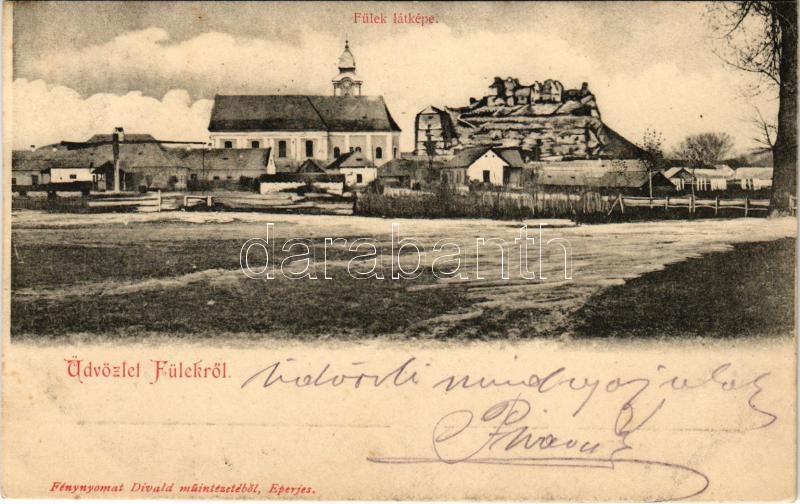 Fülek látképe.
darabanth
Üdvözlet Fülekről.
Üdvözli
Fénynyomat Divald műintézetéből, Eperjes.